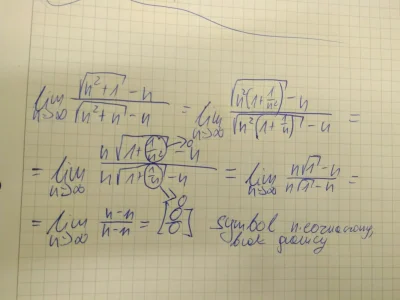 lim n→∞ (√(n²+1) - n)/(√(n²+n) - n) = lim n→∞ (√(n²(1+1/n²)) - n)/(√(n²(1+1/n)) - n) =
= lim n→∞ (n√(1+1/n²) - n)/(n√(1+1/n) - n) = lim n→∞ (n√1 - n)/(n√1 - n) =
→0
→0
= lim n→∞ (n-n)/(n-n) = [0/0] symbol nieoznaczony,
brak granicy